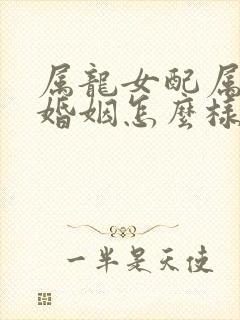 属龍女配属
婚姻怎麼樣
一半是天使